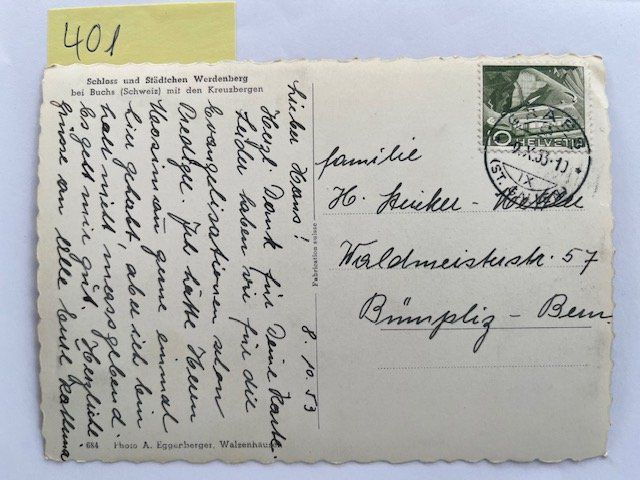 401
Schloss und Städtchen Werdenberg
bei Buchs (Schweiz) mit den Kreuzbergen
8. 10. 53
Lieber Hans!
Herzl. Dank für Deine Karte.
Leider haben wir für die
Evangelisationen schon
Redner. Ich hätte Herrn
gerne einmal
hier gehabt, aber ich bin
halt nicht massgebend.
Es geht mir gut. Herzliche
Grüsse an alle Eure
684 Photo A. Eggenberger, Walzenhausen
Fabrication suisse
HELVETIA
10
GRABS
X.53-10
(ST.
familie
H.
Waldmeisterstr. 57
Bümpliz - Bern